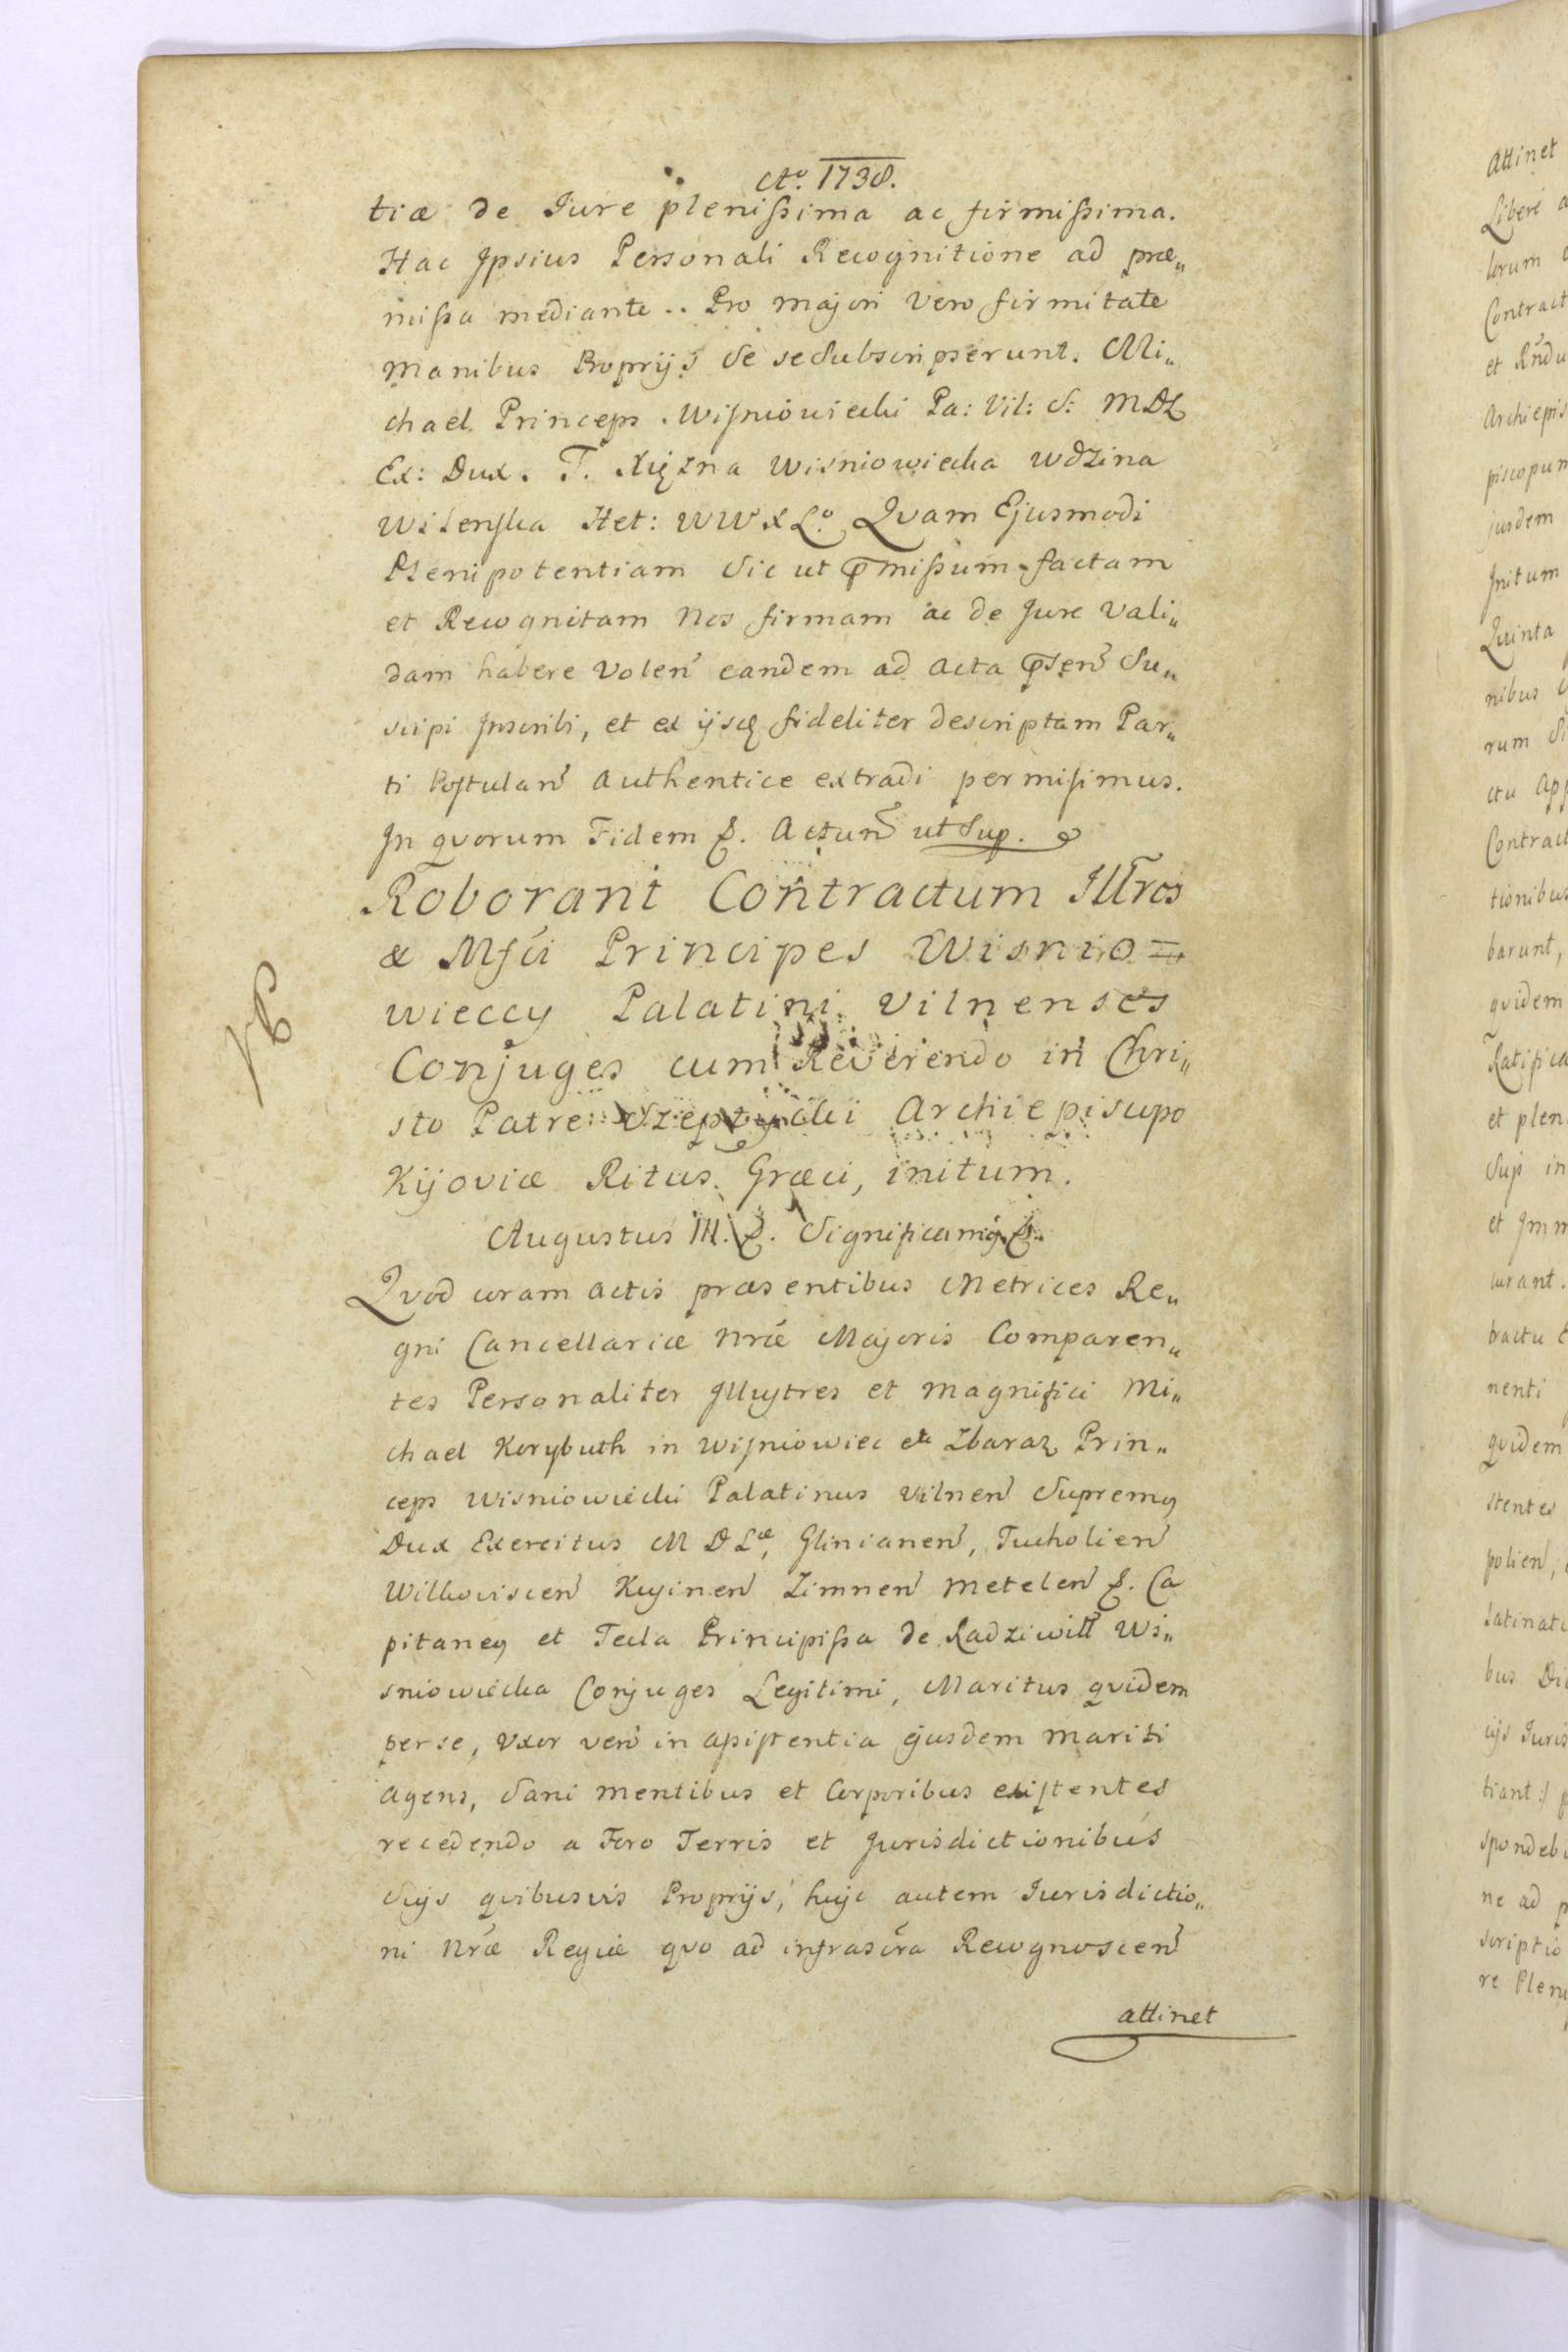 Aō. 1738.
tiæ de Iure plenißima ac firmißima.
Hac Ipsius Personali Recognitione ad præ„
mißa mediante .. Pro majori vero firmitate
Manibus Proprijs Se se Subscripserunt. Mi„
chael Princeps Wiſniowiecki Pa: Vil: S: MDL
Ex: Dux. T. Xiężna Wisniowiecka Wdzina
Wilenſka Het: WWXLº. Qvam Ejusmodi
Plenipotentiam Sic ut p̄mißum factam
et Recognitam Nos firmam ac de Jure Vali„
dam habere Volen̄ eandem ad Acta p̄sen̄ Su„
scipi Inscribi, et ex ijsq fideliter descriptam Par„
ti Postulan̄ Authentice extradi permiſimus.
In qvorum Fidem &. Actum̄ ut Sup.
Roborant Contractum Illr̄es
& Mſci Principes Wisnio=
wieccy Palatini Vilnenses
Conjuges cum Reverendo in Chri„
sto Patre Szeptycki Archiepiscopo
Kijoviæ Ritus Græci, initum.
NB
Augustus III. &. Significamq. &.
Qvod coram Actis præsentibus Metrices Re„
gni Cancellariæ Nr̄æ Majoris Comparen„
tes Personaliter Illuſtres et Magnifici Mi„
chael Korybuth in Wiſniowiec et Zbaraz Prin„
ceps Wisniowiecki Palatinus Vilnen̄ Supremq
Dux Exercitus M D Læ, Glinianen̄, Tucholien̄
Wilkoviscen̄ Kuyinen̄ Zimnen̄ Metelen̄ &. Ca
pitaneq et Tecla Principißa de Radziwiłł Wi„
sniowiecka Conjuges Legitimi, Maritus qvidem
per se, Uxor vero in aßiſtentia ejusdem Mariti
Agens, Sani Mentibus et Corporibus exiſtentes
recedendo a Foro Terris et Jurisdictionibus
Suijs qvibusvis Proprijs, huic autem Iurisdictio„
ni Nr̄æ Regiæ qvo ad infrascr̄a Recognoscen̄
attinet
Attinet
Contract
Archiepis
jusdem
Initum
Quinta
nibus
rum
Contract
tionibus
barunt,
qvidem
Ratifica
et plen
Sup in
curant.
nenti
qvidem
stentes
polien̄,